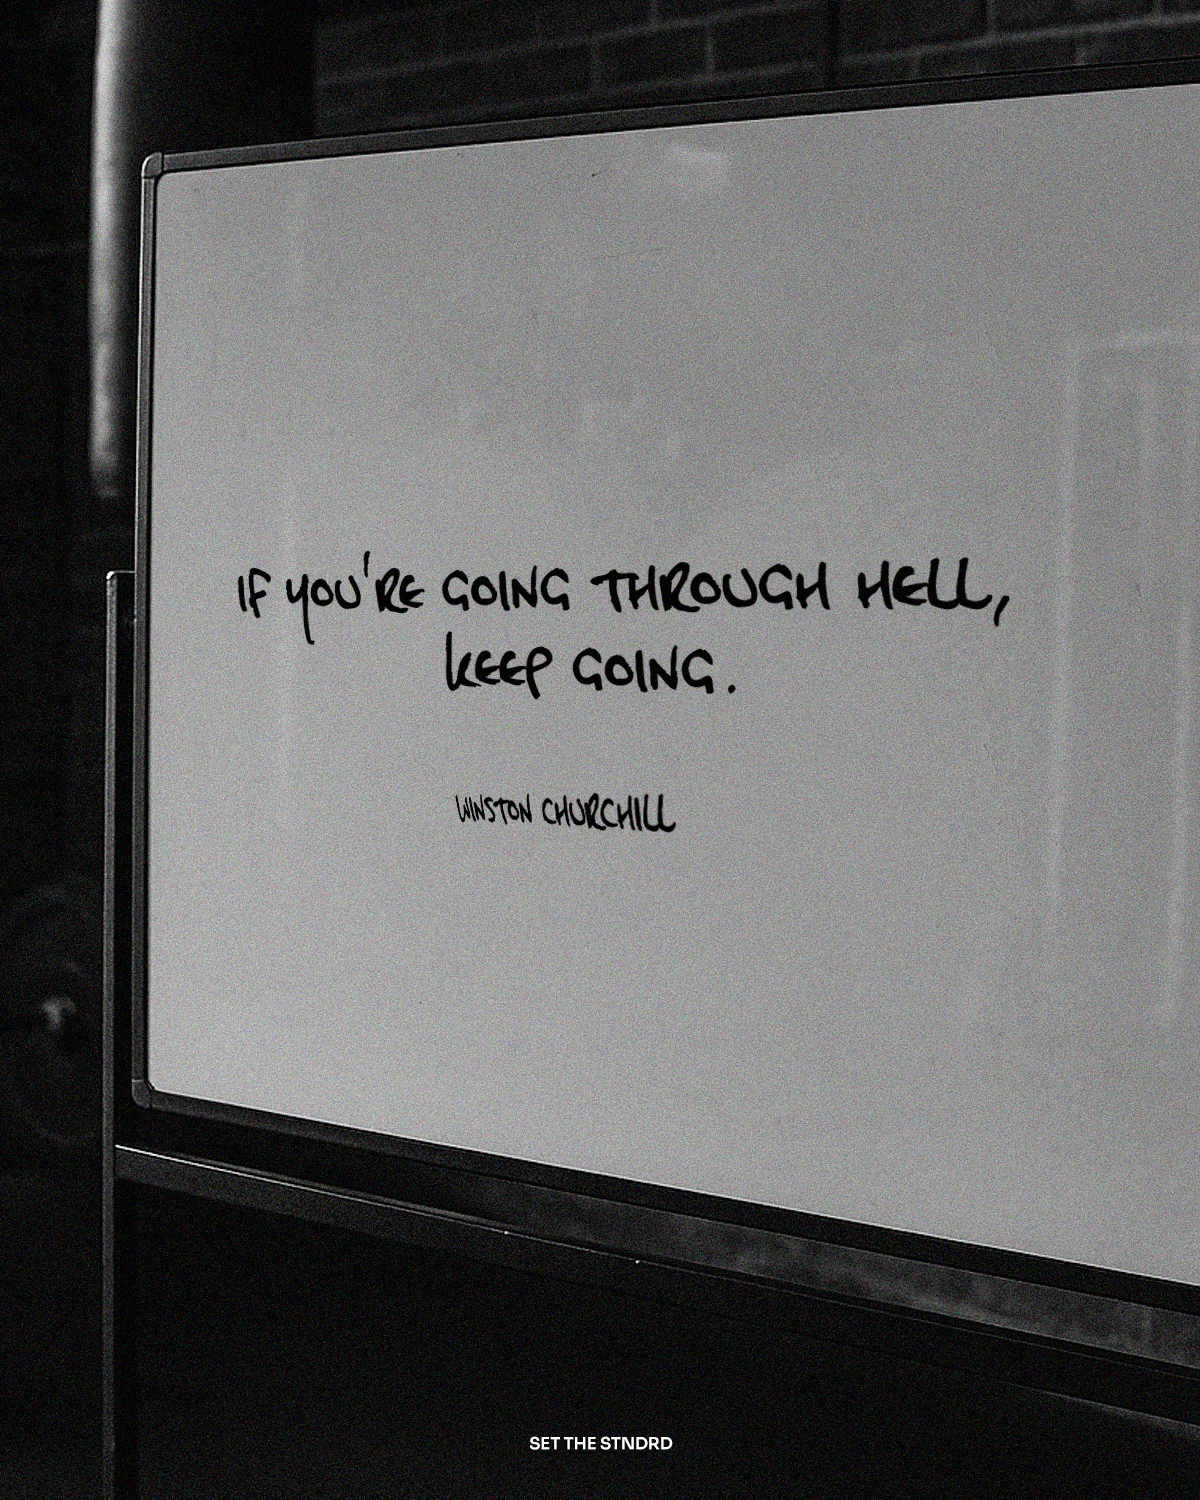 IF YOU'RE GOING THROUGH HELL,
KEEP GOING.
WINSTON CHURCHILL
SET THE STNDRD